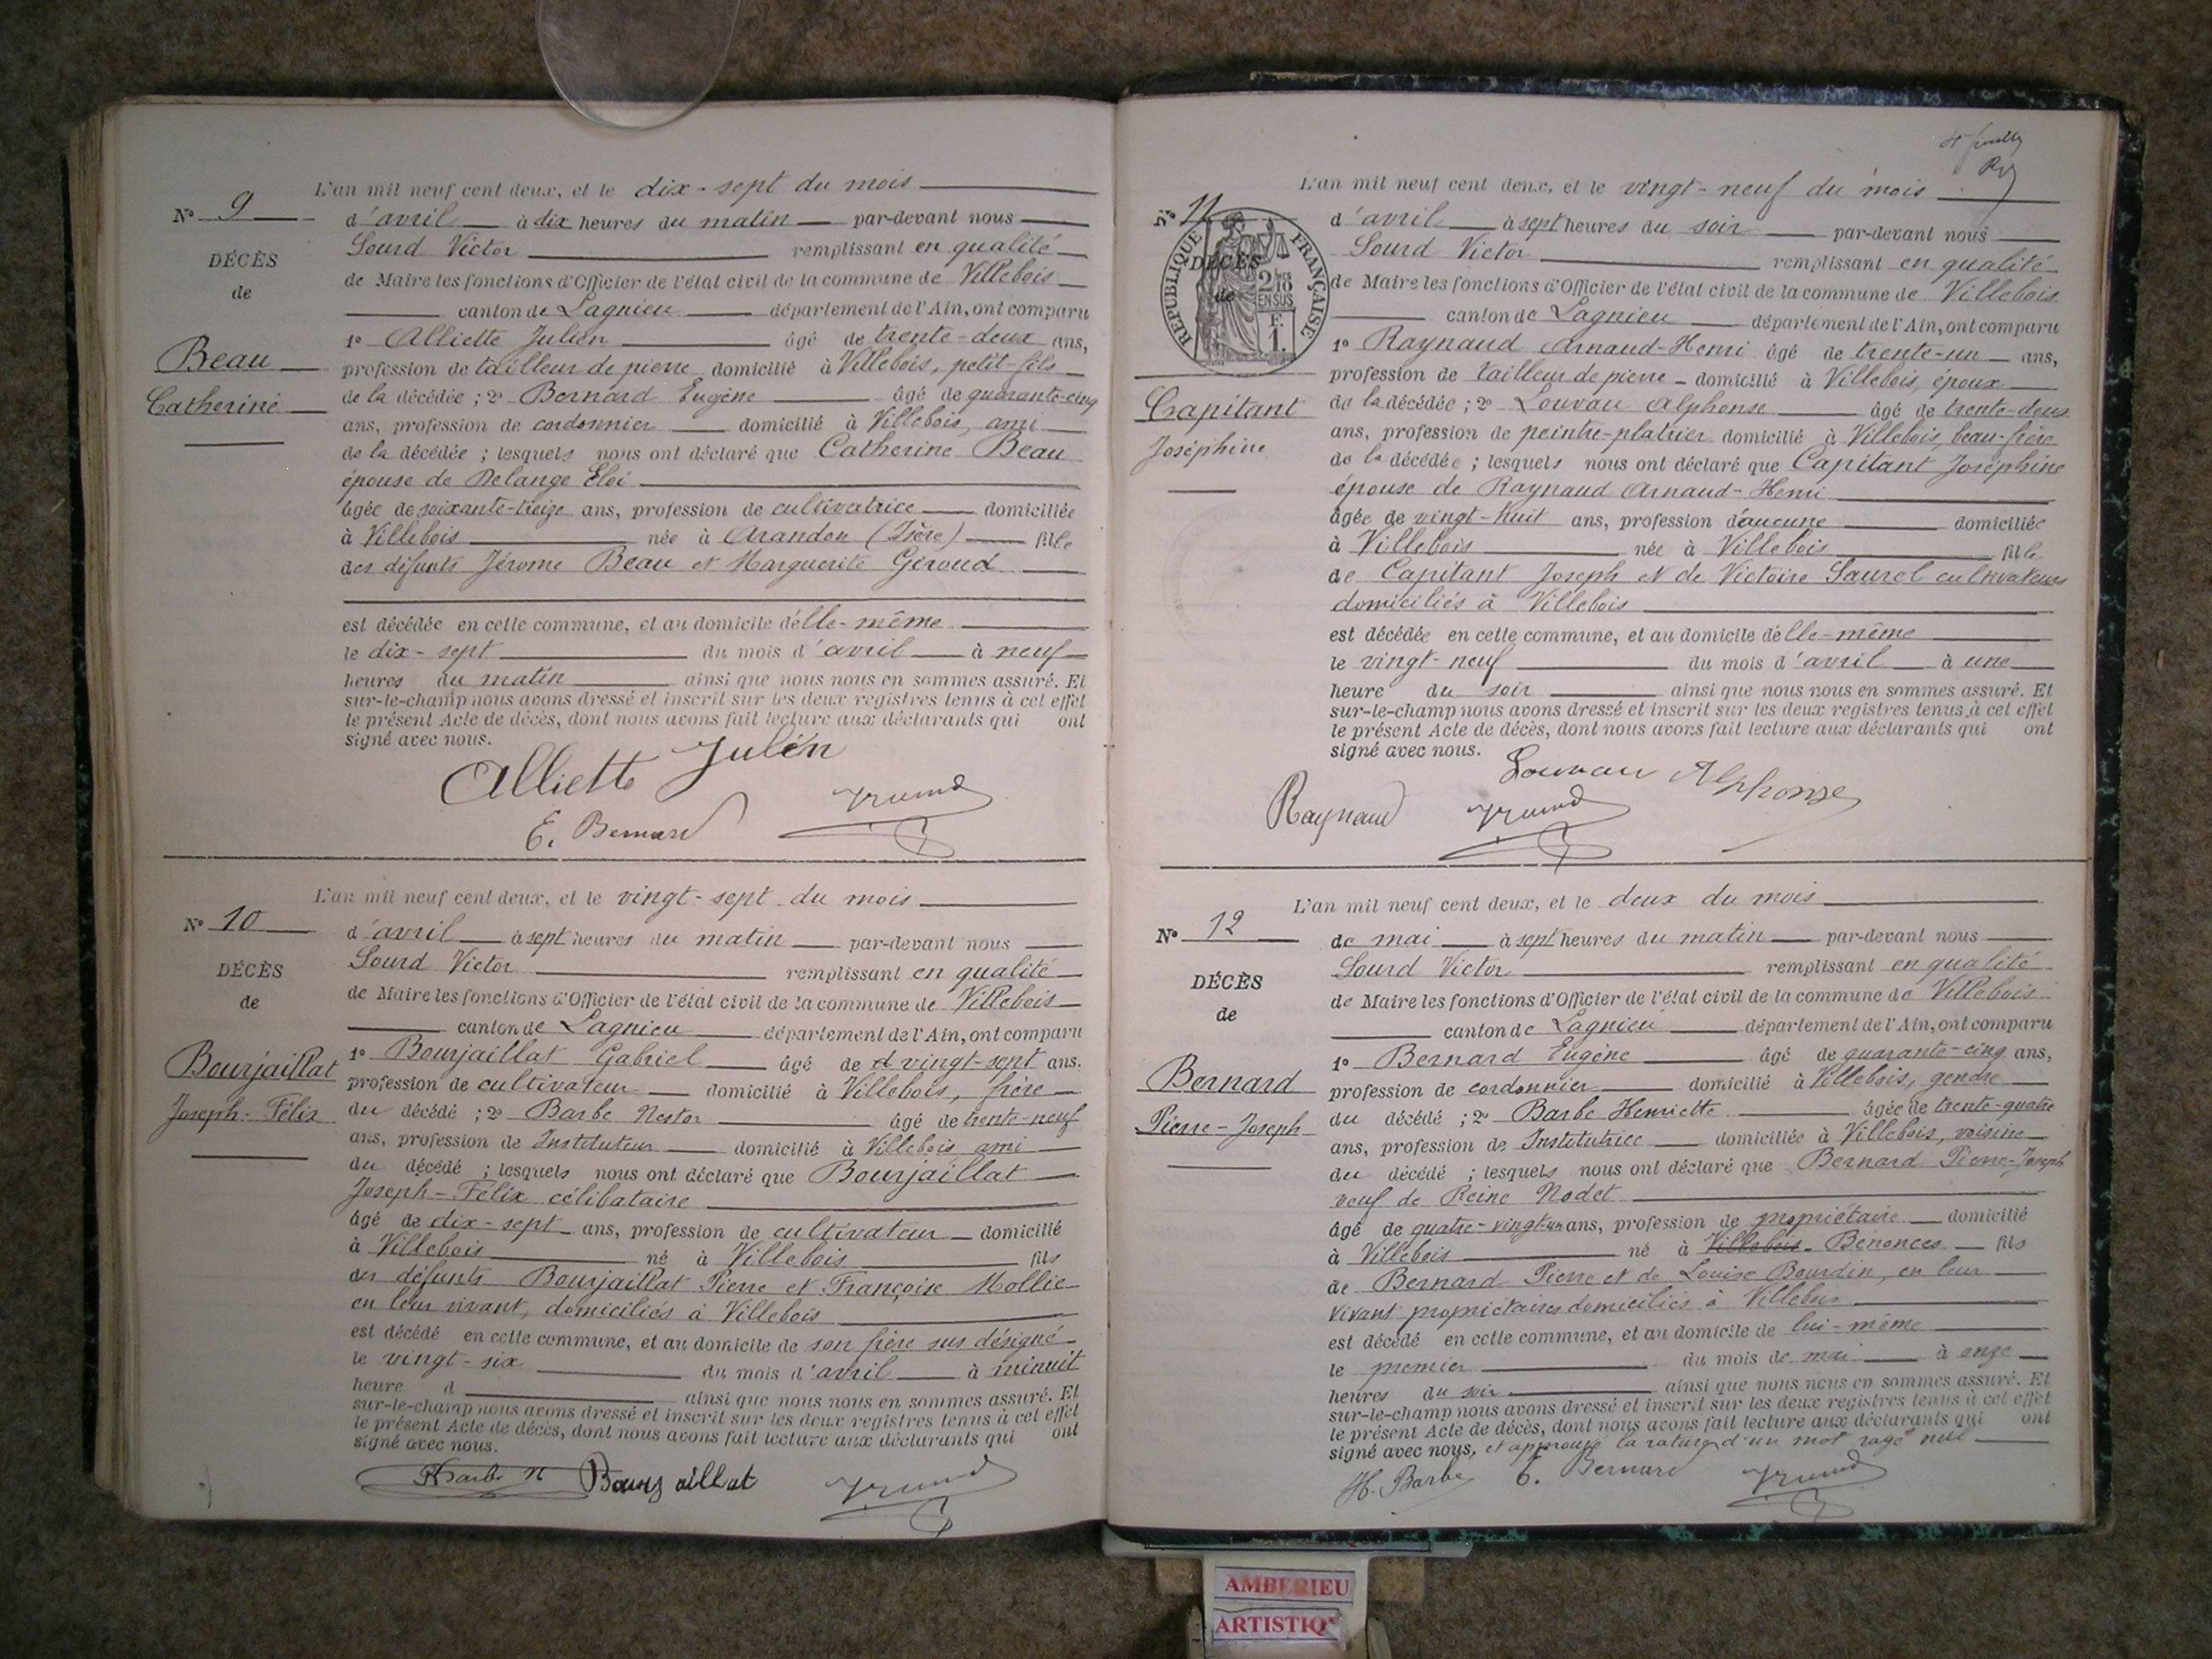 N° 9
DÉCÈS
de
Beau
Catherine
L'an mil neuf cent deux, et le dix-sept du mois
d'avril à dix heures du matin par-devant nous
Sourd Victor remplissant en qualité
de Maire les fonctions d'Officier de l'état civil de la commune de Villebois
canton de Lagnieu département de l'Ain, ont comparu
1° Alliette Julien âgé de trente-deux ans,
profession de tailleur de pierre domicilié à Villebois, petit-fils
de la décédée ; 2° Bernard Eugène âgé de quarante-cinq
ans, profession de cordonnier domicilié à Villebois, ami
de la décédée ; lesquels nous ont déclaré que Catherine Beau
épouse de Delange Eloi
âgée de soixante-treize ans, profession de cultivatrice domiciliée
à Villebois née à Arandon (Isère) fille
des défunts Jérome Beau et Marguerite Géroud
est décédée en cette commune, et au domicile d'elle-même
le dix-sept du mois d'avril à neuf
heures du matin ainsi que nous nous en sommes assuré. Et
sur-le-champ nous avons dressé et inscrit sur les deux registres tenus à cet effet
le présent Acte de décès, dont nous avons fait lecture aux déclarants qui ont
signé avec nous.
Alliette Julien
E. Bernard
N° 10
DÉCÈS
de
Bourjaillat
Joseph-Félix
L'an mil neuf cent deux, et le vingt-sept du mois
d'avril à sept heures du matin par-devant nous
Sourd Victor remplissant en qualité
de Maire les fonctions d'Officier de l'état civil de la commune de Villebois
canton de Lagnieu département de l'Ain, ont comparu
1° Bourjaillat Gabriel âgé de vingt-sept ans.
profession de cultivateur domicilié à Villebois, frère
du décédé ; 2° Barbe Nestor âgé de trente-neuf
ans, profession de Instituteur domicilié à Villebois ami
du décédé ; lesquels nous ont déclaré que Bourjaillat
Joseph-Félix célibataire
âgé de dix-sept ans, profession de cultivateur domicilié
à Villebois né à Villebois fils
des défunts Bourjaillat Pierre et Françoise Mollie
en leur vivant, domiciliés à Villebois
est décédé en cette commune, et au domicile de son frère sus désigné
le vingt-six du mois d'avril à minuit
heure d ainsi que nous nous en sommes assuré. Et
sur-le-champ nous avons dressé et inscrit sur les deux registres tenus à cet effet
le présent Acte de décès, dont nous avons fait lecture aux déclarants qui ont
signé avec nous.
Barbe N Bourjaillat
N° 11
RÉPUBLIQUE FRANÇAISE
2/10 EN SUS
F. 1.
DÉCÈS
de
Capitant
Joséphine
L'an mil neuf cent deux, et le vingt-neuf du mois
d'avril à sept heures du soir par-devant nous
Sourd Victor remplissant en qualité
de Maire les fonctions d'Officier de l'état civil de la commune de Villebois
canton de Lagnieu département de l'Ain, ont comparu
1° Raynaud Arnaud-Henri âgé de trente-un ans,
profession de tailleur de pierre domicilié à Villebois, époux
de la décédée ; 2° Louvau Alphonse âgé de trente-deux
ans, profession de peintre-platrier domicilié à Villebois, beau-frère
de la décédée ; lesquels nous ont déclaré que Capitant Joséphine
épouse de Raynaud Arnaud-Henri
âgée de vingt-huit ans, profession d'aucune domiciliée
à Villebois née à Villebois fille
de Capitant Joseph et de Victoire Saurel cultivateurs
domiciliés à Villebois
est décédée en cette commune, et au domicile d'elle-même
le vingt-neuf du mois d'avril à une
heure du soir ainsi que nous nous en sommes assuré. Et
sur-le-champ nous avons dressé et inscrit sur les deux registres tenus à cet effet
le présent Acte de décès, dont nous avons fait lecture aux déclarants qui ont
signé avec nous.
Louvau Alphonse
Raynaud
N° 12
DÉCÈS
de
Bernard
Pierre-Joseph
L'an mil neuf cent deux, et le deux du mois
de mai à sept heures du matin par-devant nous
Sourd Victor remplissant en qualité
de Maire les fonctions d'Officier de l'état civil de la commune de Villebois
canton de Lagnieu département de l'Ain, ont comparu
1° Bernard Eugène âgé de quarante-cinq ans,
profession de cordonnier domicilié à Villebois, gendre
du décédé ; 2° Barbe Henriette âgée de trente-quatre
ans, profession de Institutrice domiciliée à Villebois, voisine
du décédé ; lesquels nous ont déclaré que Bernard Pierre-Joseph
veuf de Reine Nodet
âgé de quatre-vingt-un ans, profession de propriétaire domicilié
à Villebois né à Villebois Bénonces fils
de Bernard Pierre et de Louise Bourdin, en leur
vivant propriétaires domiciliés à Villebois
est décédé en cette commune, et au domicile de lui-même
le premier du mois de mai à onze
heures du soir ainsi que nous nous en sommes assuré. Et
sur-le-champ nous avons dressé et inscrit sur les deux registres tenus à cet effet
le présent Acte de décès, dont nous avons fait lecture aux déclarants qui ont
signé avec nous, et approuvé la rature d'un mot rayé nul
H. Barbe E. Bernard
AMBERIEU
ARTISTIQ